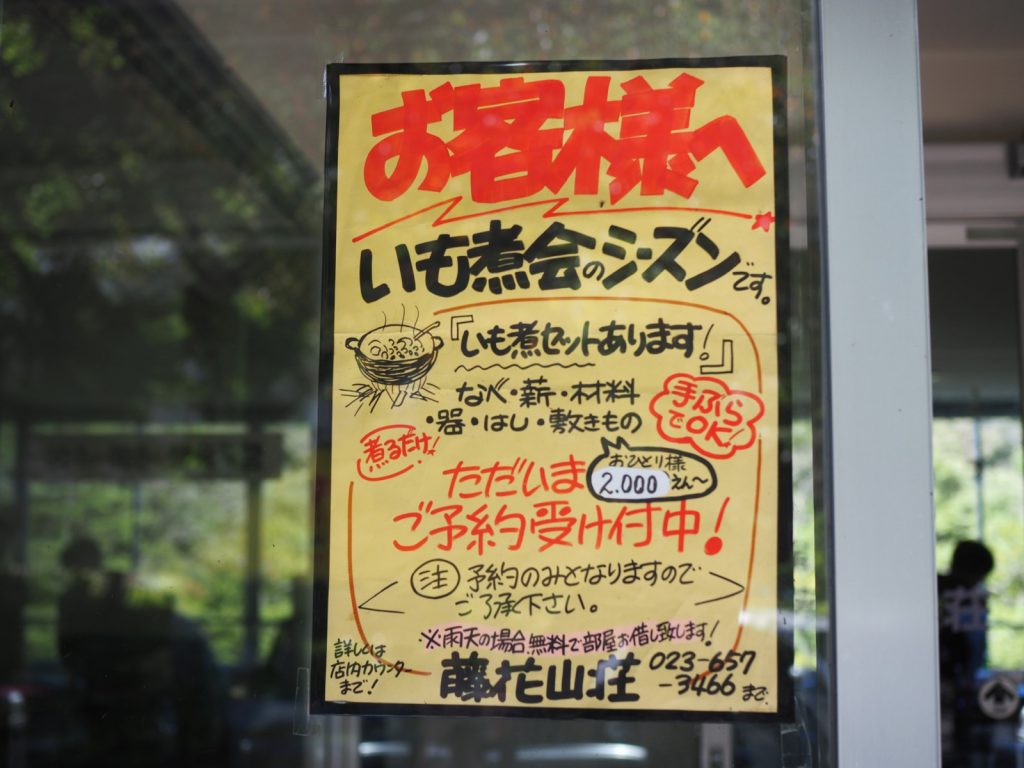 お客様へ
いも煮会のシーズンです。
『いも煮セットあります!』
なべ・薪・材料
・器・はし・敷きもの
手ぶらでOK!
煮るだけ!
おひとり様
2.000えん〜
ただいま
ご予約受け付中!
注 予約のみとなりますので
ご了承下さい。
※雨天の場合、無料で部屋お借し致します!
詳しくは
店内カウンター
まで!
藤花山荘
023-657
-3466まで
荘